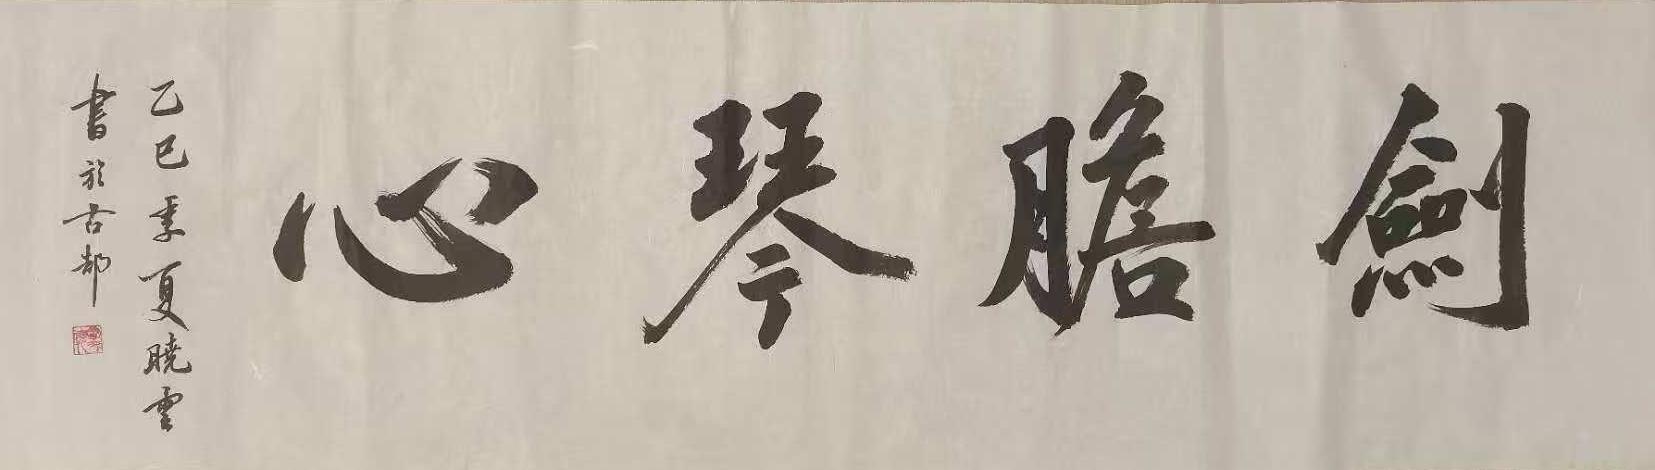 劍膽琴心
乙巳季夏曉雲
書於古都